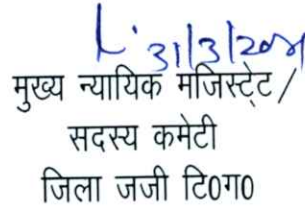 31/3/20
मुख्य न्यायिक मजिस्ट्रेट /
सदस्य कमेटी
जिला जजी टि0ग0